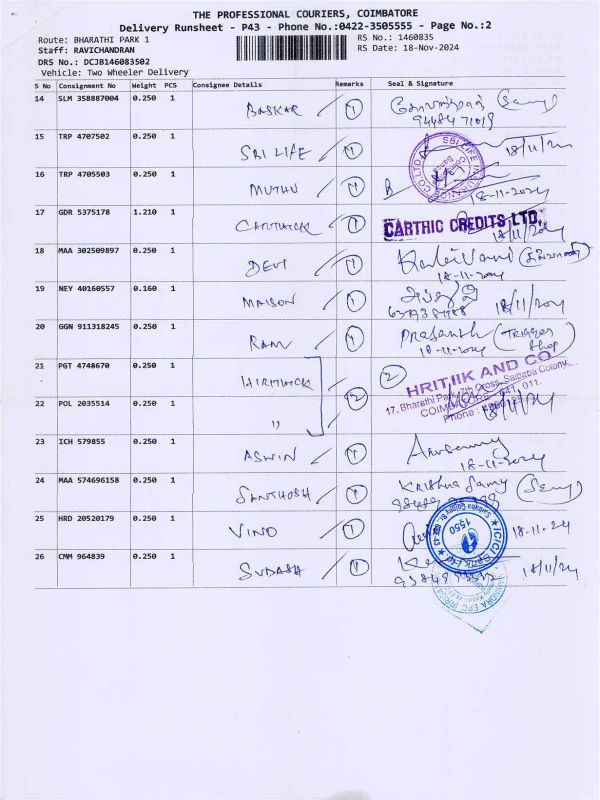 THE PROFESSIONAL COURIERS, COIMBATORE
Delivery Runsheet - P43 - Phone No.:0422-3505555 - Page No.:2
Route: BHARATHI PARK 1
RS No.: 1460835
Staff: RAVICHANDRAN
RS Date: 18-Nov-2024
DRS No.: DCJB146083502
Vehicle: Two Wheeler Delivery
S No Consignment No Weight PCS Consignee Details Remarks Seal & Signature
14 SLM 358887004 0.250 1 BASKAR 1
15 TRP 4707502 0.250 1 SBI LIFE 1 SBI LIFE INSURANCE CO LTD 18/11/24
16 TRP 4705503 0.250 1 MUTHU 1 18-11-2024
17 GDR 5375178 1.210 1 1 CARTHIC CREDITS LTD. 18/11/24
18 MAA 302509897 0.250 1 DEVI 1 18-11-2024
19 NEY 40160557 0.160 1 MAISON 1 18/11/2024
20 GGN 911318245 0.250 1 RAM 1 Prasanth (Trigger Shop)
18-11-2024
21 PGT 4748670 0.250 1 HIRITHICK 2 2 HRITIIK AND CO
17, Bharathi Park, 7th Cross, Saibaba Colony,
22 POL 2035514 0.250 1 " COIMBATORE - 641 011.
Phone :
23 ICH 579855 0.250 1 ASWIN 1 18-11-2024
24 MAA 574696158 0.250 1 SANTHOSH 1 Krishna Samy
25 HRD 20520179 0.250 1 VINO 1 ICICI Bank Ltd 1550 18-11-24
26 CMM 964839 0.250 1 SUDASH 1 18/11/24